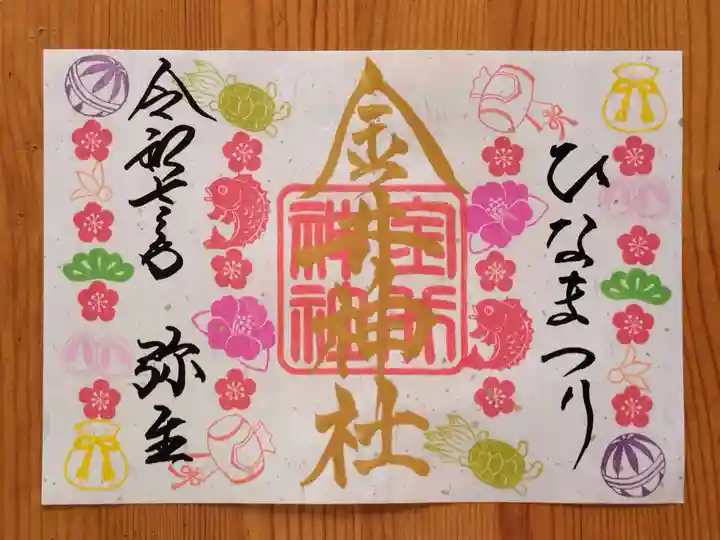 ひなまつり
金井神社
令和七年三月
弥生